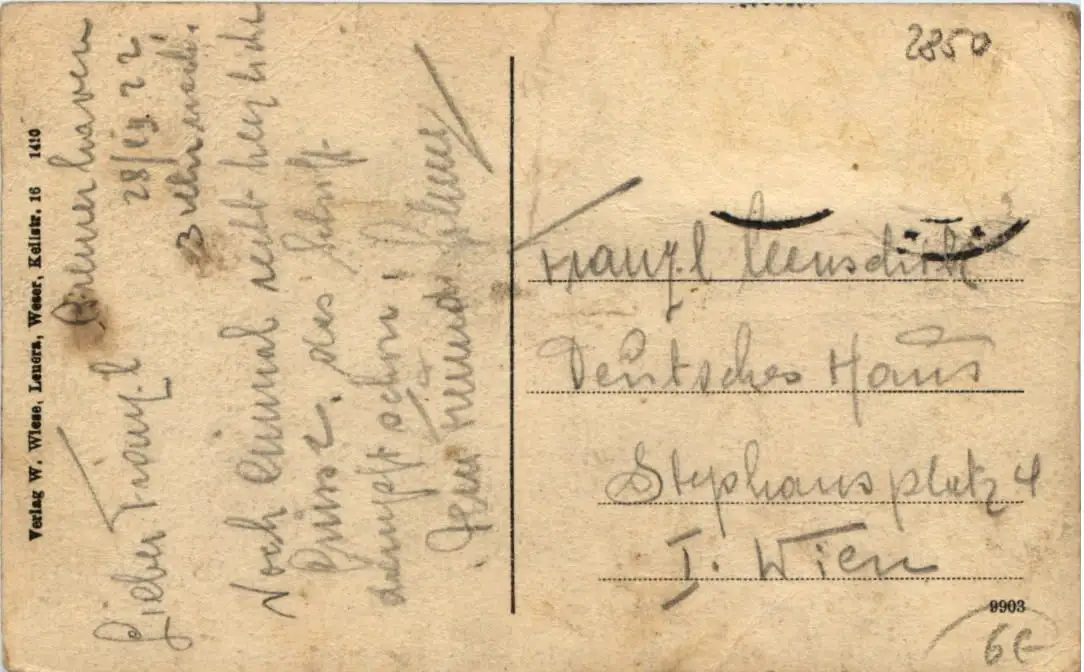 Verlag W. Wiese, Lehe a. d. Weser, Keilstr. 16 1410
Bremerhaven
28/ 22
3 Uhr
Lieber Franzl
Noch einmal recht herzliche
Grüsse, das Schiff
dampft schon!
Dein Freund
2850
Franzl
Deutsches Haus
Stephansplatz 4
I. Wien
9903
6€